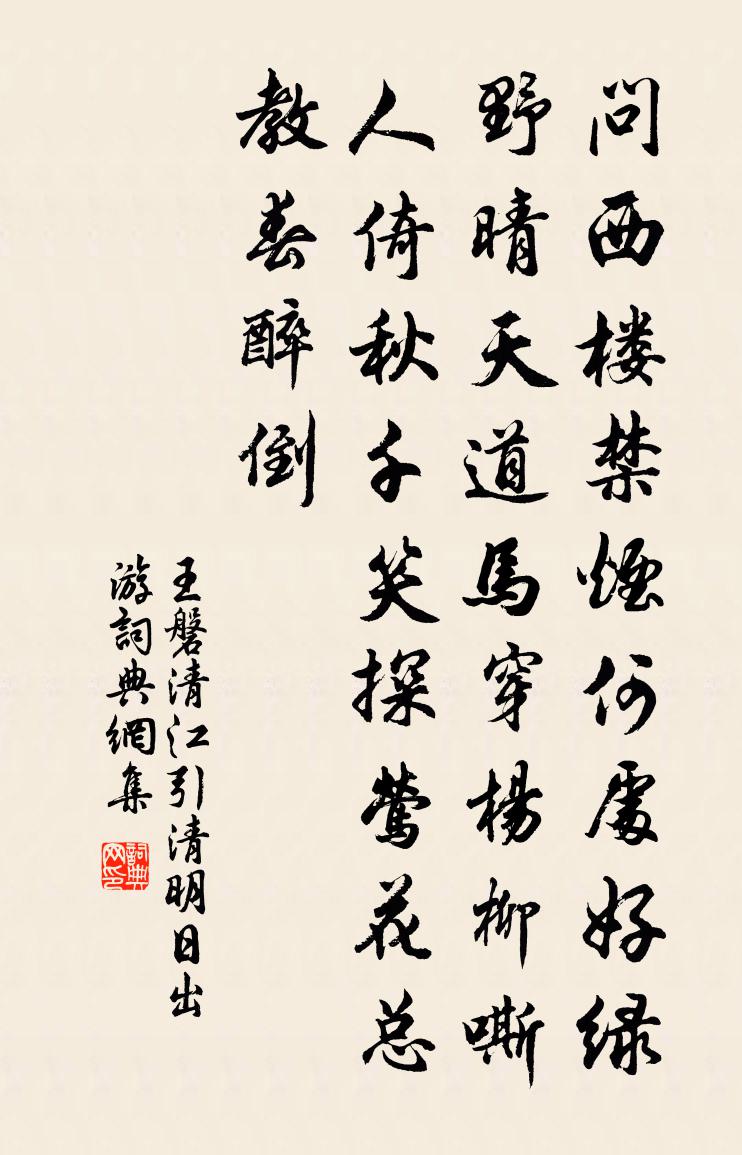 问西楼禁煙何處好绿
野晴天道馬穿楊柳嘶
人倚秋千笑探莺花总
教春醉倒
王磐清江引清明日出
游詞典網集
詞典网印